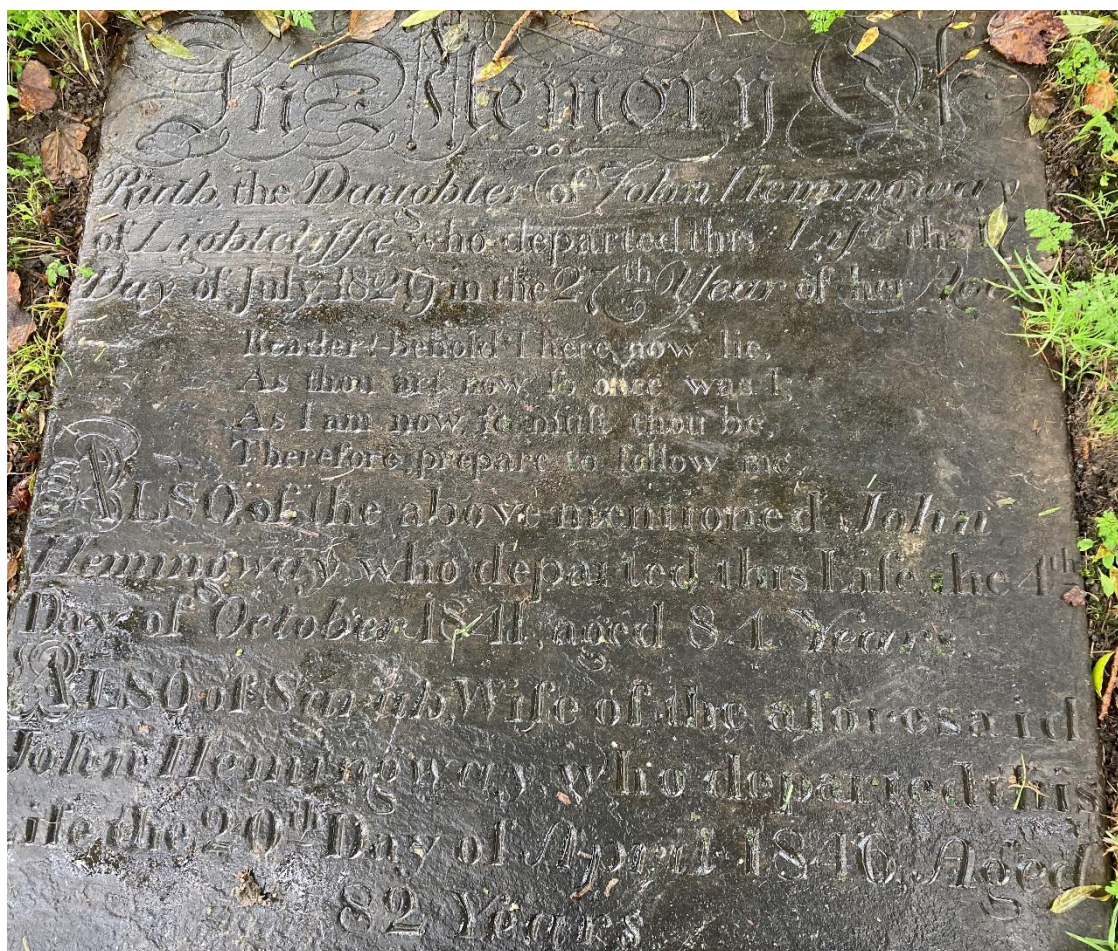 In Memory Of
Ruth, the Daughter of John Hemingway
of Lightcliffe who departed this Life the
Day of July, 1829, in the 27th Year of her Age
Reader! behold There now lie,
As thou art now, ſo once was I;
As I am now, ſo muſt thou be,
Therefore prepare to follow me.
ALSO, of the above-mentioned John
Hemingway, who departed this Life, the 4th
Day of October 1841, aged 84 Years.
ALSO of Sarah, Wife of the aforesaid
John Hemingway, who departed this
Life, the 20th Day of April 1846, Aged
82 Years